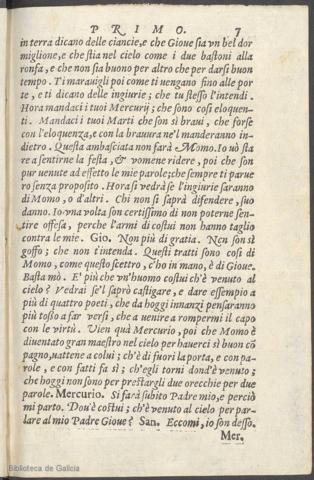 PRIMO. 7
in terra dicano delle ciancie, e che Gioue sia vn bel dor
miglione, e che stia nel cielo come i due bastoni alla
ronfa, e che non sia buono per altro che per darsi buon
tempo. Ti marauigli poi come ti uengano fino alle por
te, e ti dicano delle ingiurie; che tu stesso l'intendi.
Hora mandaci i tuoi Mercurij; che sono cosi eloquen-
ti. Mandaci i tuoi Marti che son sì braui, che forse
con l'eloquenza, e con la brauura ne'l manderanno in-
dietro. Questa ambasciata non farà Momo. Io uò sta
re a sentirne la festa, & vomene ridere, poi che son
pur uenute ad effetto le mie parole; che sempre ti parue
ro senza proposito. Hora si vedrà se l'ingiurie saranno
di Momo, o d'altri. Chi non si saprà difendere, suo
danno. Io vna volta son certissimo di non poterne sen-
tire offesa, perche l'armi di costui non hanno taglio
contra le mie. Gio. Non più di gratia. Non son sì
goffo; che non t'intenda. Questi tratti sono cosi di
Momo, come questo scettro, c'ho in mano, è di Gioue.
Basta mò. E' più che vn'huomo costui ch'è venuto al
cielo? Vedrai se'l saprò castigare, e dare essempio a
più di quattro poeti, che da hoggi innanzi pensaranno
più tosto a far versi, che a uenire a rompermi il capo
con le virtù. Vien quà Mercurio, poi che Momo è
diuentato gran maestro nel cielo per hauerci sì buon cõ
pagno, uattene a colui; ch'è di fuori la porta, e con pa-
role, e con fatti fa sì; ch'egli torni dond'è venuto;
che hoggi non sono per prestargli due orecchie per due
parole. Mercurio. Si farà subito Padre mio, e perciò
mi parto. Dou'è costui; ch'è venuto al cielo per par-
lare al mio Padre Gioue? San. Eccomi, io son desso.
Mer.
Biblioteca de Galicia